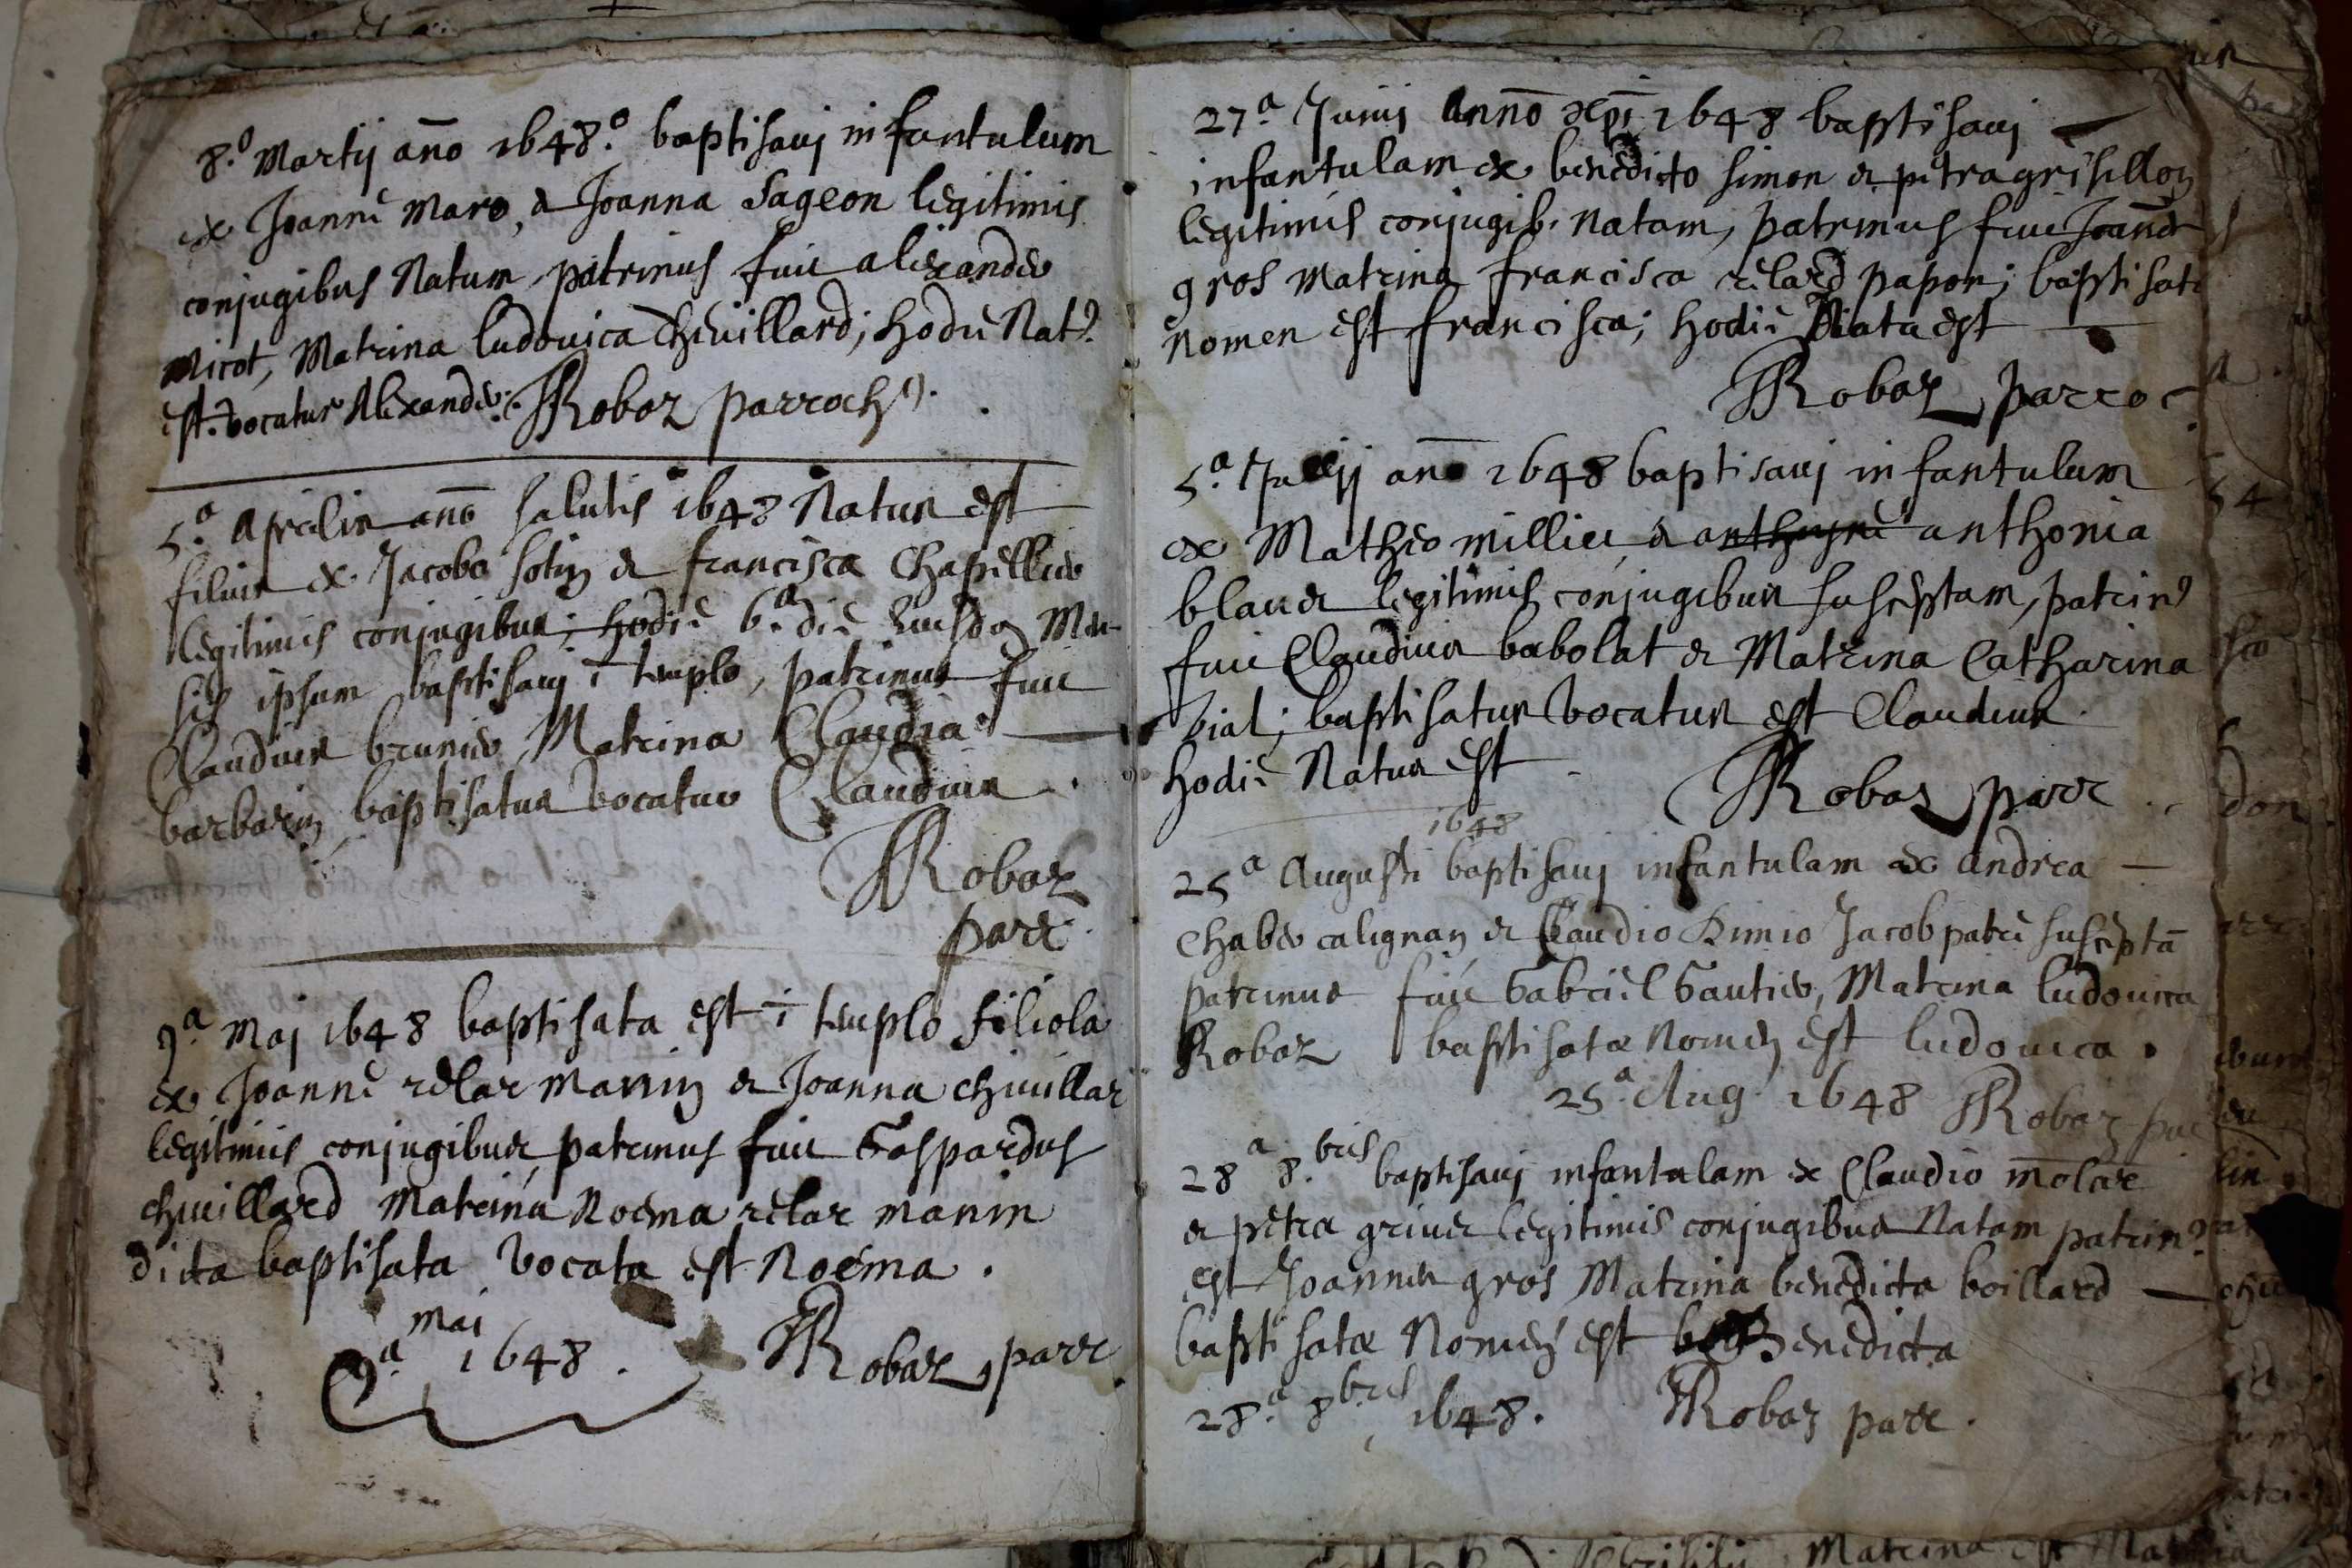 8.º Martij año 1648.º baptisavj infantulum
ex Joanne Maro, & Joanna Sageon legitimis
conjugibus Natum, patrinus fuit alexander
Micot, Matrina ludovica Chevillard; hodie Nat9
est. vocatur Alexander. Robaz parroch9.
5.ª Aprilis año salutis 1648 Natus est
filius ex Jacobo sotin & francisca Chapellier
legitimis conjugibus; hodie 6.ª die eiusdem Men-
sis ipsum baptisavj ī templo, patrinus fuit
Claudius brunier, Matrina Claudia
barbarin baptisatus vocatur Claudius
Robaz
parr.
9.ª Maj 1648 baptisata est ī templo filiola
ex Joanne relar manin & Joanna chevillar
legitimis conjugibus, patrinus fuit Gaspardus
chevillard Matrina Noema relar manin
dicta baptisata vocata est Noéma.
9.ª maj 1648. Robaz parr
27.ª Junij Anno xpi 1648 baptisavj
infantulam ex benedicto simon & petra grisellon
legitimis conjugib. natam, patrinus fuit Joanes
gros Matrina francisca relard papon; baptisate
nomen est francisca; hodie Nata est
Robaz parroc
5.ª Julij ano 1648 baptisavj infantulum
ex Matheo millieu & anthoyne anthonia
blau & legitimis conjugibus susceptum, patrin9
fuit Claudius babolat & Matrina Catharina
vial; baptisatus vocatus est Claudius.
hodie Natus est
Robaz parr
1648
25ª Augusti baptisavj infantulam ex Andrea
Chaber calignan & Claudio Jacob patre susceptā
patrinus fuit Gabriel Gautier, Matrina ludovica
Robaz baptisatæ Nomen est ludovica.
25.ª Aug. 1648 Robaz parr
28ª 8.bris baptisavj infantulam ex Claudio molar
& petra griver legitimis conjugibus Natam patrin9
est Joannes gros Matrina benedicta boillard
baptisatæ Nomen est Benedicta
28.ª 8bris 1648. Robaz parr.